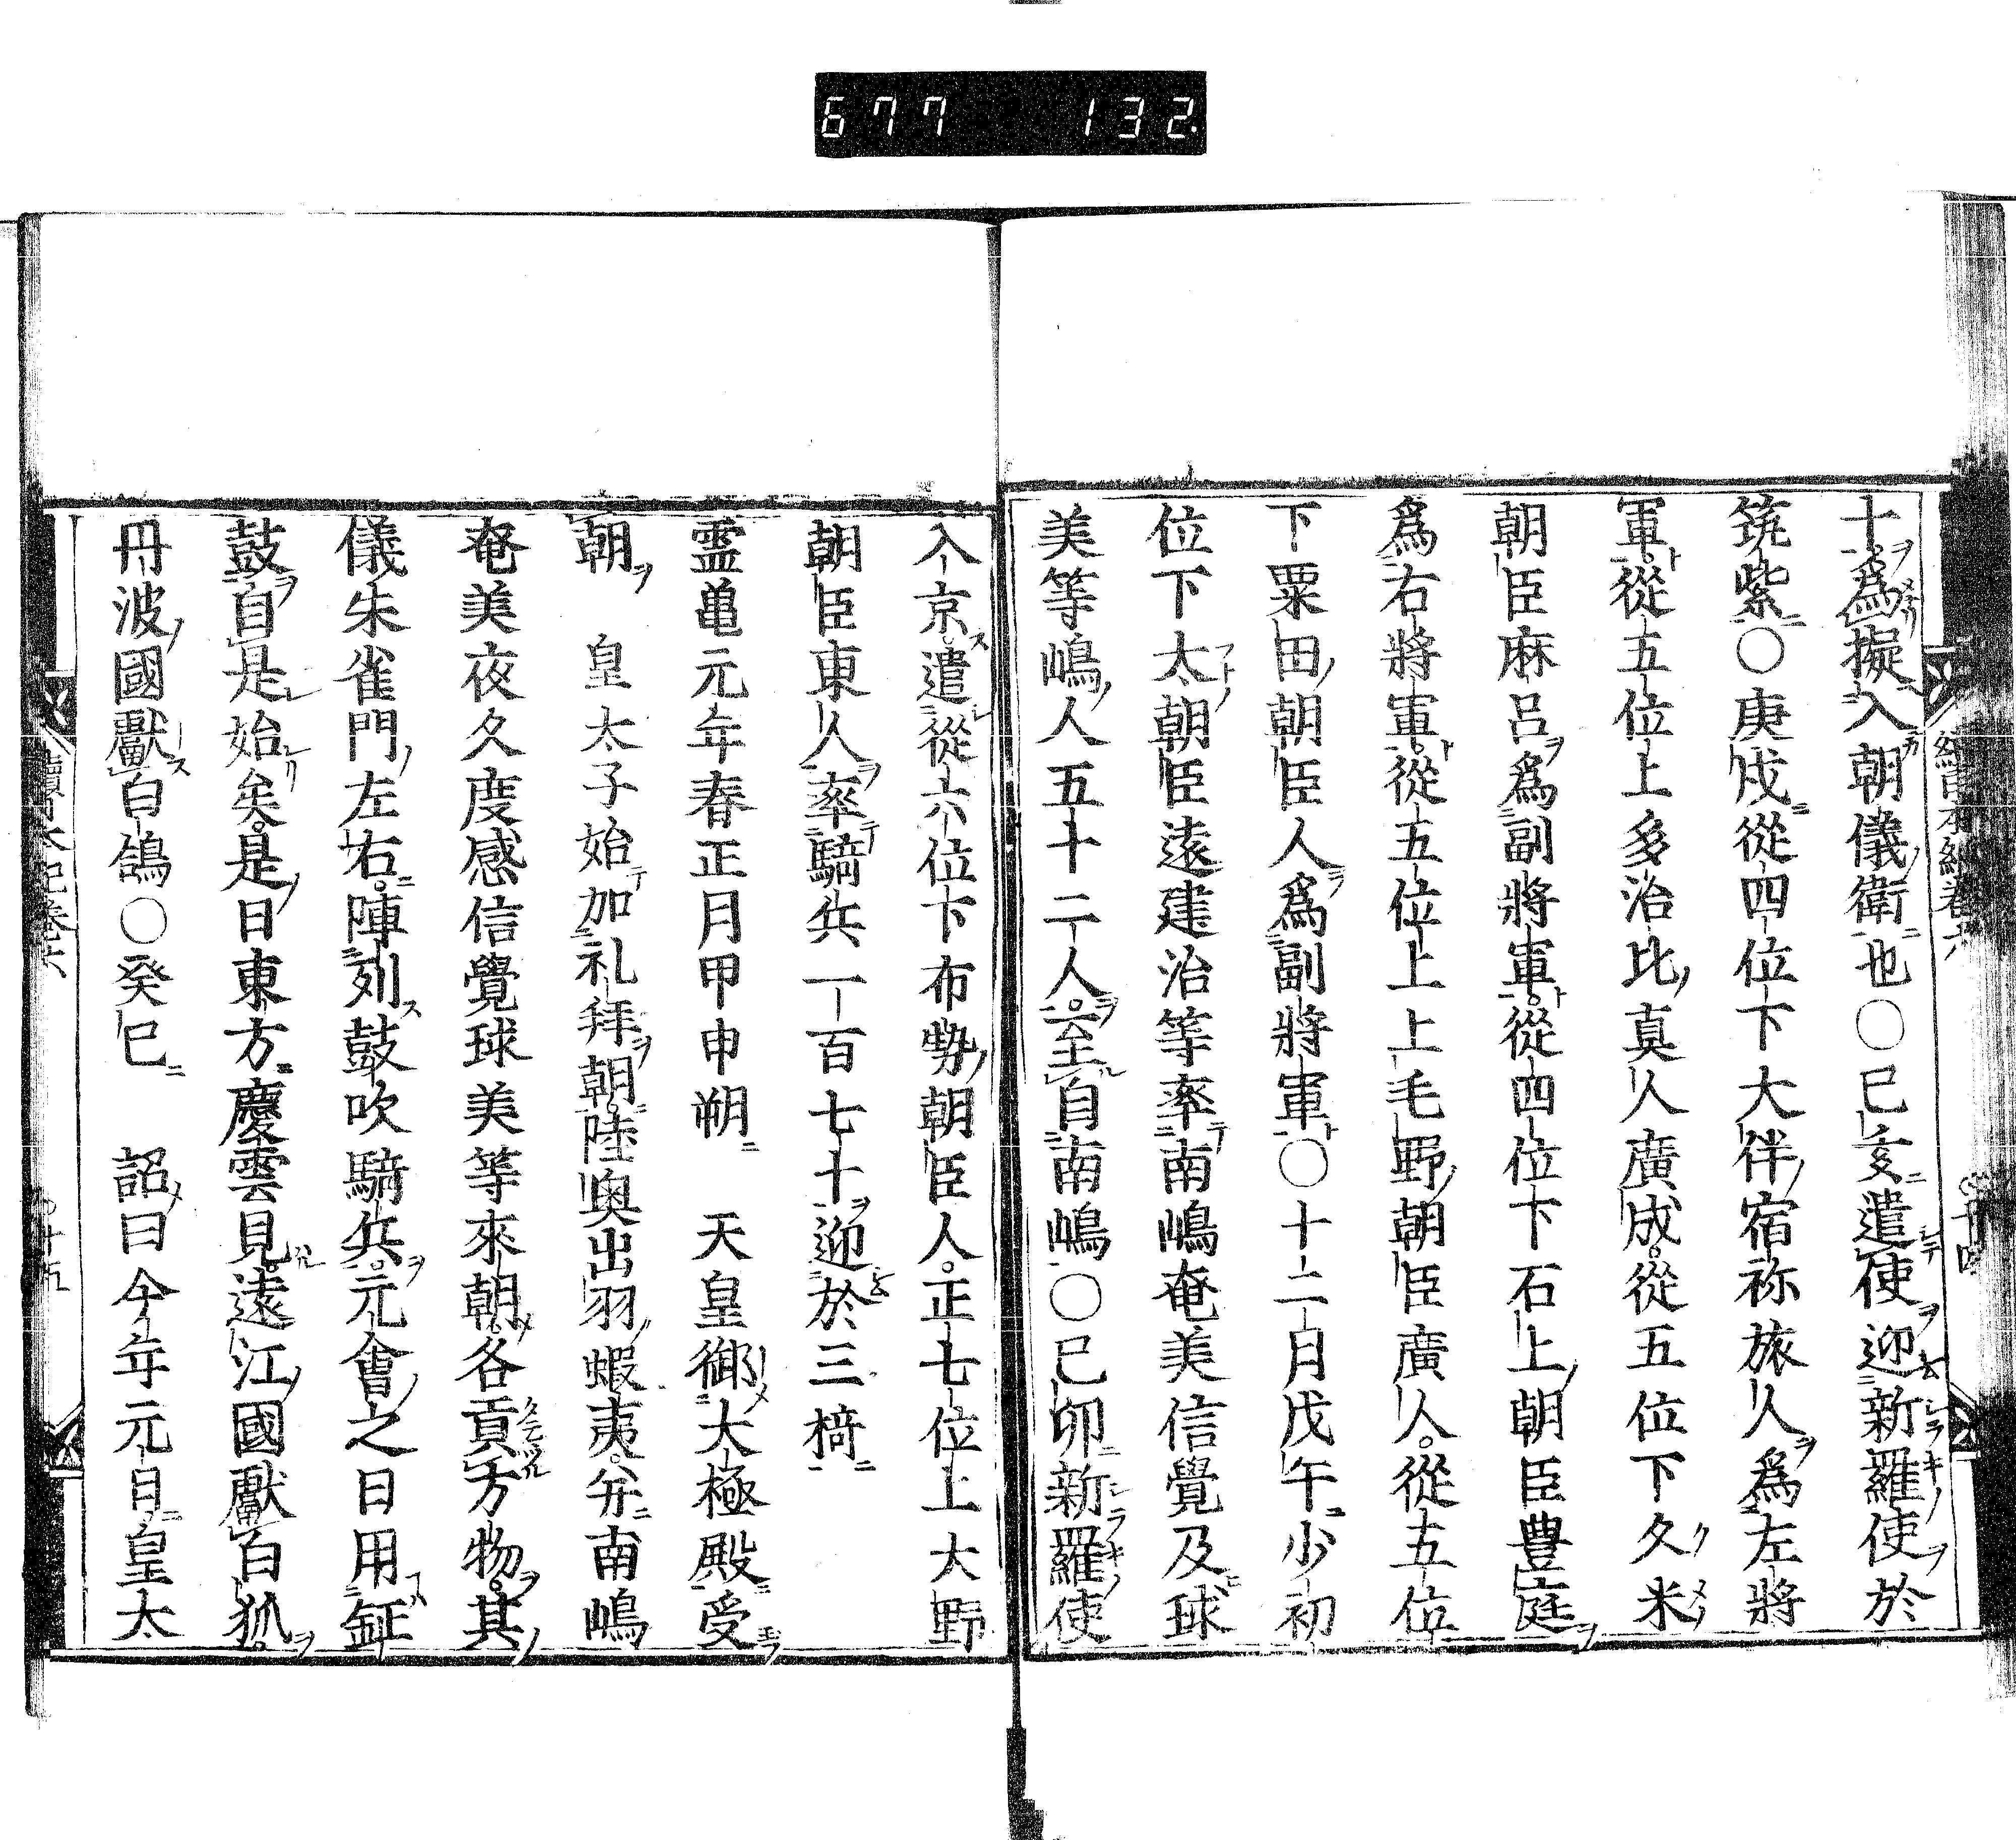 677 132.
十爲擬入朝儀衛也〇己亥遣使迎新羅使於
筑紫〇庚戌從四位下大伴宿祢旅人爲左將
軍從五位上多治比真人廣成從五位下久米
朝臣麻呂爲副將軍從四位下石上朝臣豊庭
爲右將軍從五位上上毛野朝臣廣人從五位
下粟田朝臣人爲副將軍〇十二月戊午少初
位下太朝臣遠建治等率南嶋奄美信覺及球
美等嶋人五十二人至自南嶋〇己卯新羅使
入京遣從六位下布勢朝臣人正七位上大野
朝臣東人率騎兵一百七十迎於三椅
霊亀元年春正月甲申朔 天皇御大極殿受
朝 皇太子始加礼拜朝陸奥出羽蝦夷并南嶋
奄美夜久度感信覺球美等來朝各貢方物其
儀朱雀門左右陣列鼓吹騎兵元會之日用鉦
鼓自是始矣是日東方慶雲見遠江國獻白狐
丹波國獻白鴿〇癸巳 詔曰今年元日皇太